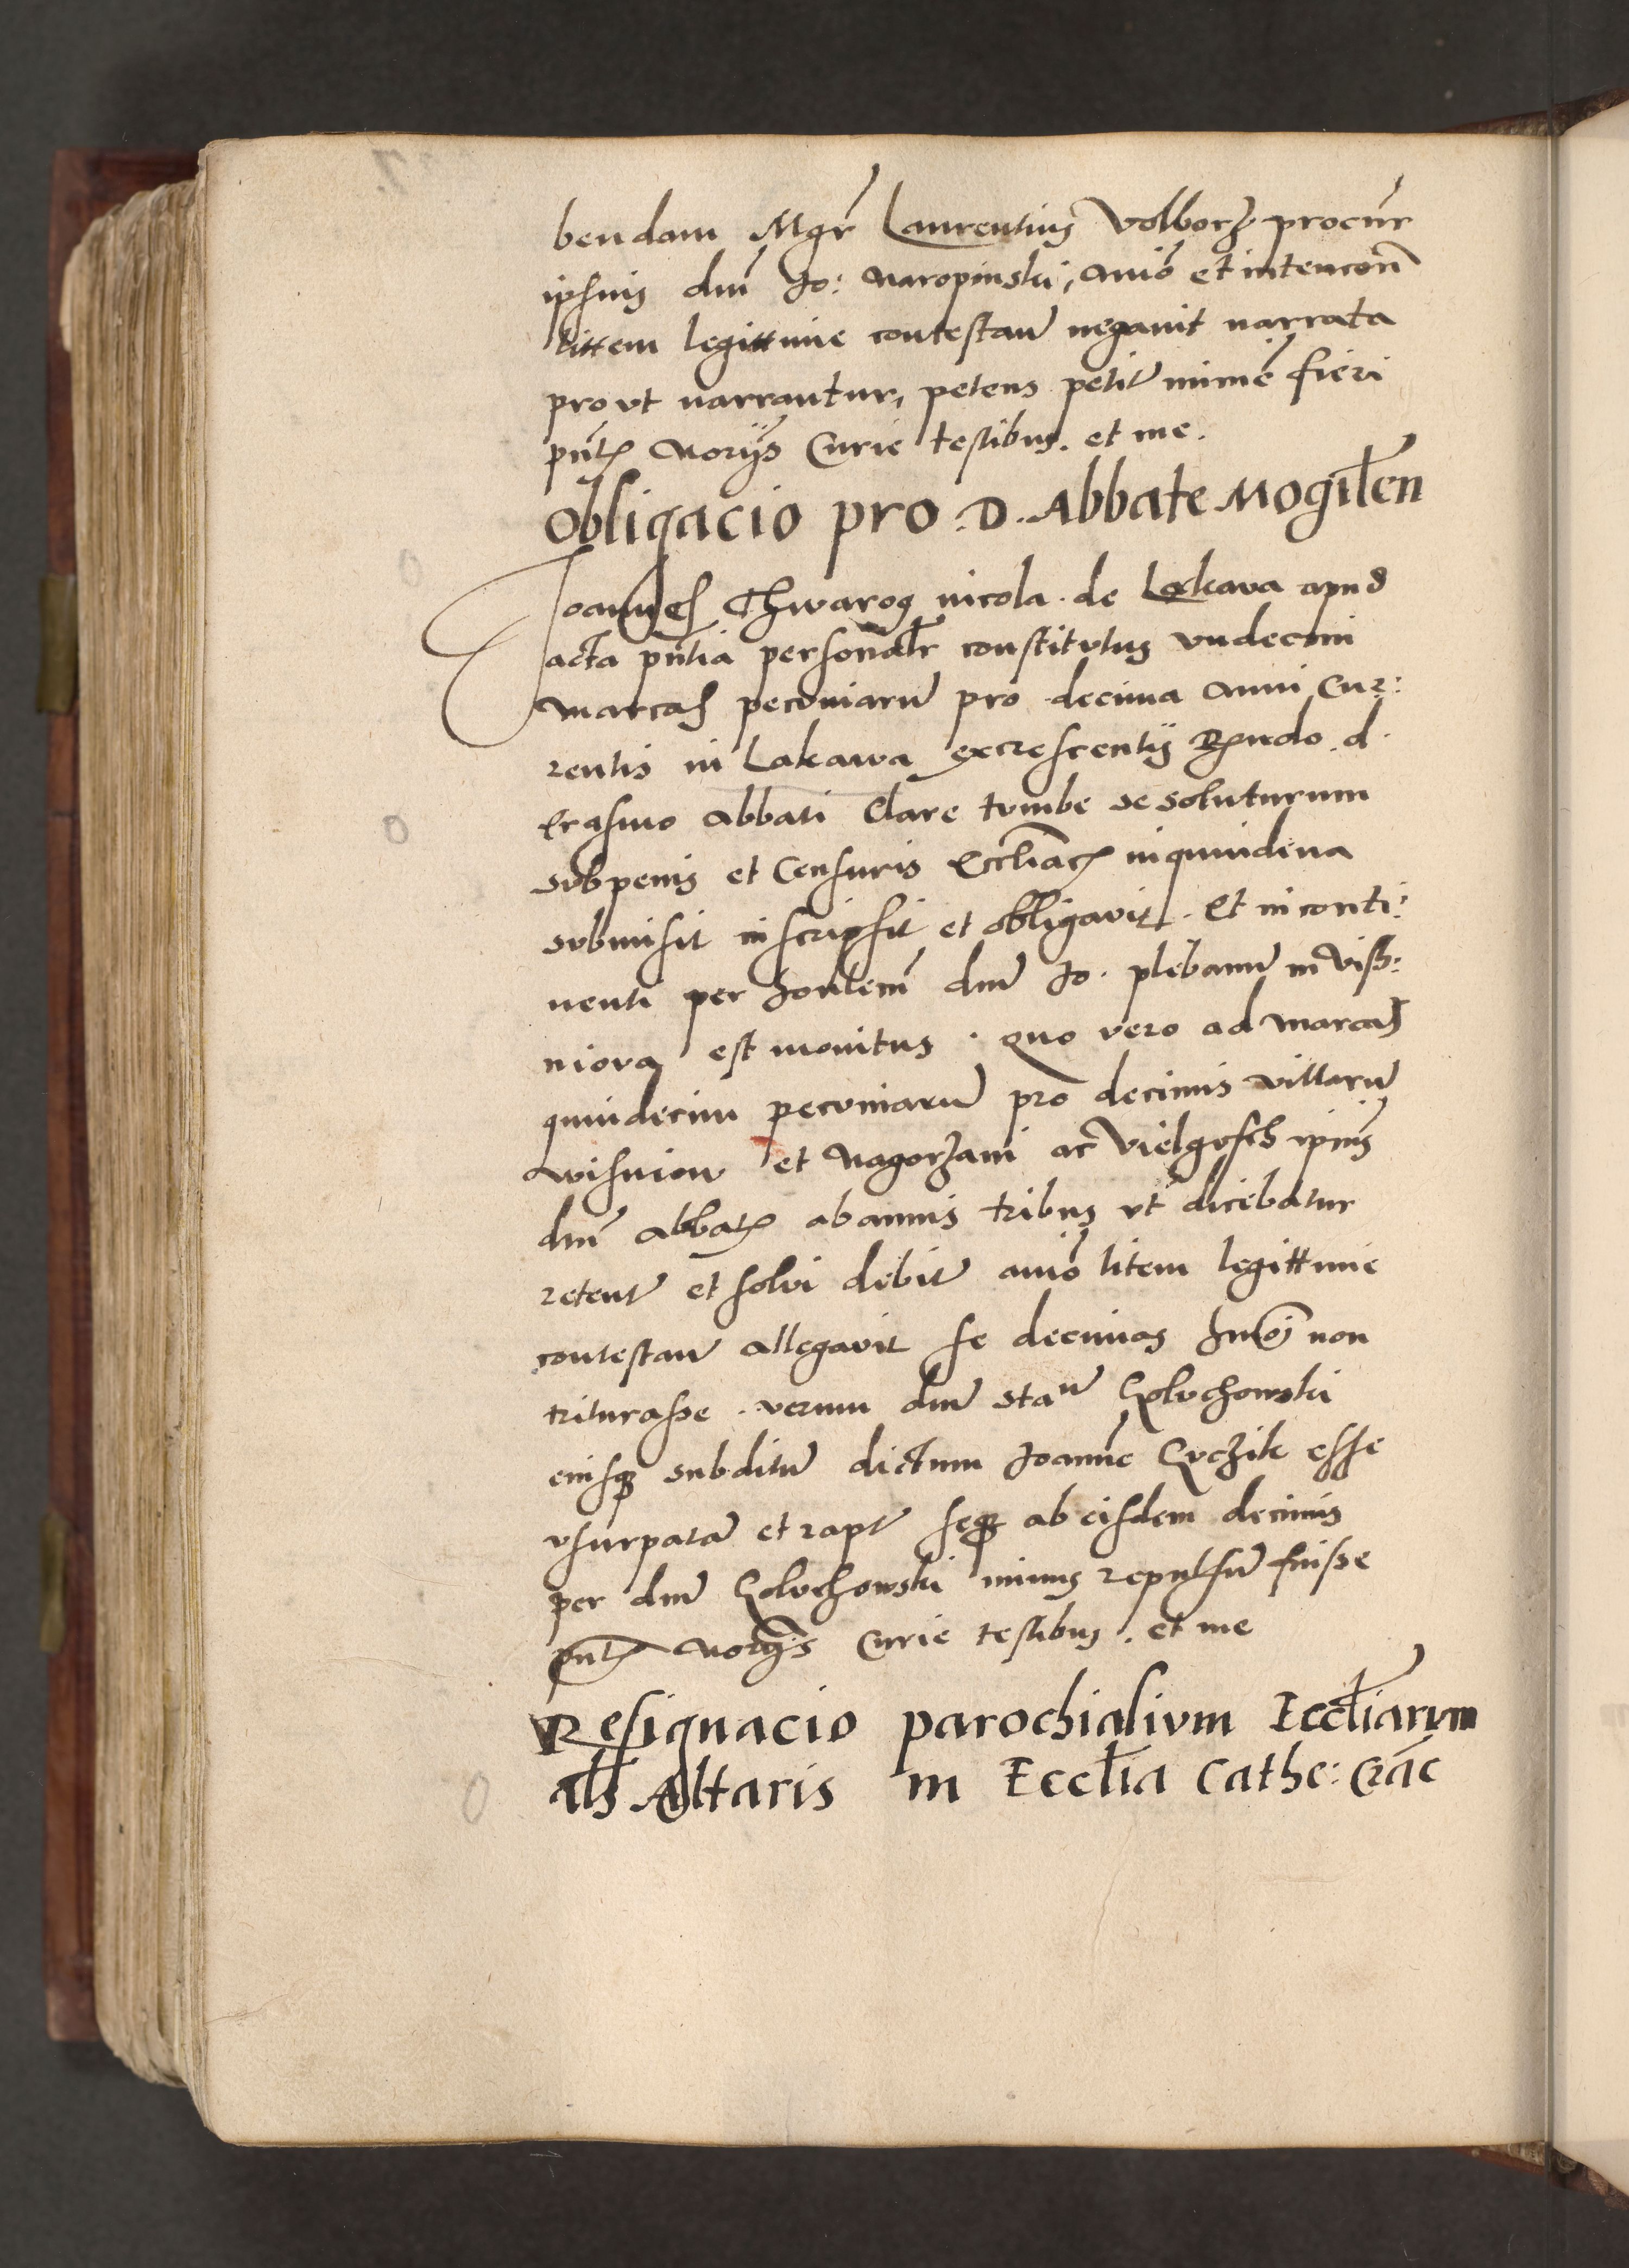 bendam Mgr̃ Laurentius Volborz procur̃
ipsius dnĩ Jo: Naropinski, aniõ et intencon̄
littem legittime contestanđ negavit narrata
prout narrantur, petens petita minimẽ fieri
pñtꝭ Norijs Curie testibus. et me.
Obligacio pro .D. Abbate Mogiłen
Joannes Thwarog incola de Lakava apud
acta pñtia personalr̃ constitutus undecim
marcas pecuniarũ pro decima anni Cur:
rentis in Lakawa excrescentis Rndo. d.
Erasmo abbati Clare tumbe se soluturum
sub penis et Censuris Ecclĩacꝭ in quindena
submisit inscripsit et obligavit. Et in conti:
nenti per honlem̃ dnũ Jo. plebanũ in Viss:
niova est monitus. quo vero ad marcas
quindecim pecuniarũ pro decimis villarũ
Wisniow et Nagorzani ac Vielgosch ipiũs
dnĩ abbatꝭ ab annis tribus ut dicebatur
retentꝭ et solvi debitꝭ aniõ litem legittime
contestanđ allegavit se decimas hmõi non
triturasse. verum dnũ Staũ Goluchowski
eiusqꝫ subditũ dictum Joannẽ Guczik esse
usurpatã et raptꝭ seqꝫ ab eisdem decimis
per dnũ Goluchowski minus repulsũ fuisse
pñtꝭ Norijs Curie testibus. et me
Resignacio parochialium Eccłiarum
als Altaris in Eccłia Cathe: Crac̃